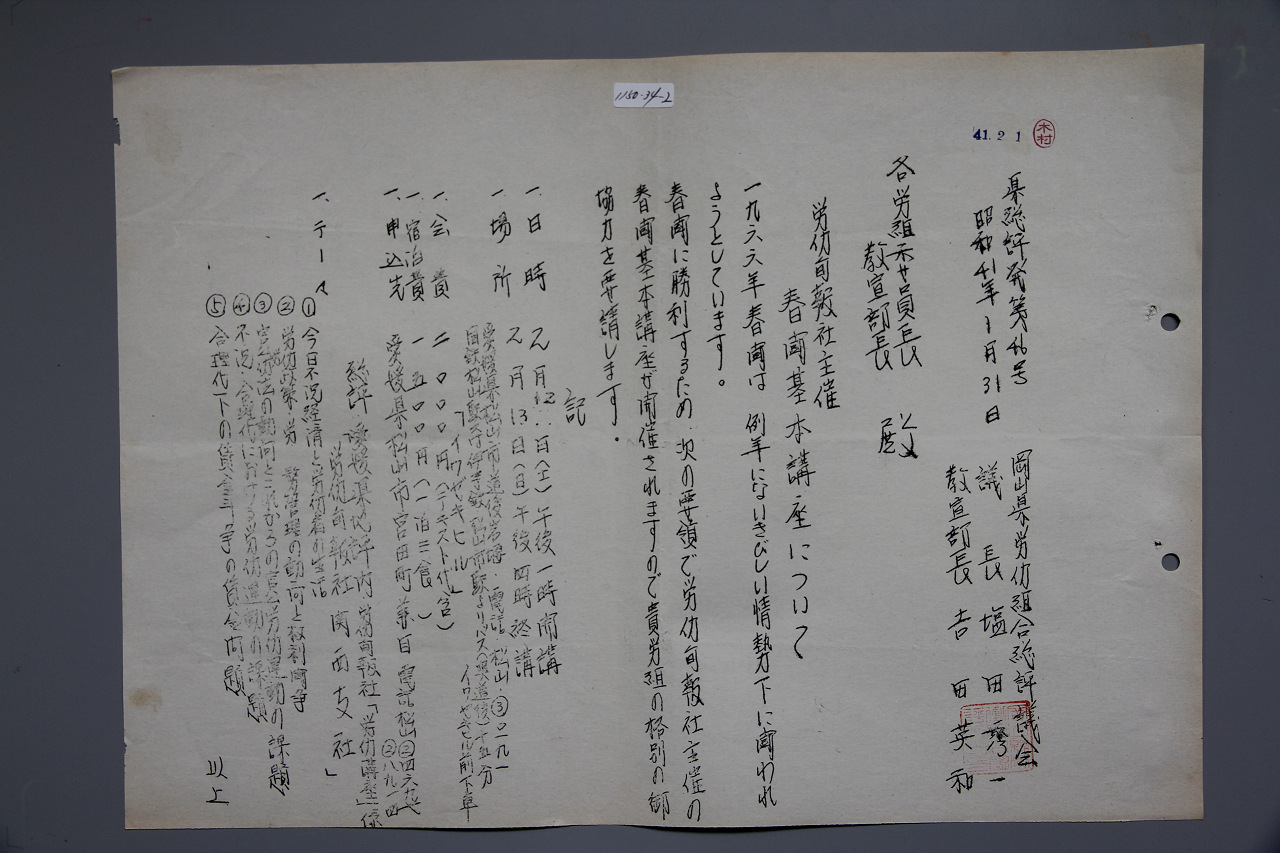 1150-34-2
41. 2 1
木村
県総評発第46号
昭和41年1月31日
岡山県労仂組合総評議会
議長 塩田
教宣部長 吉田英和
各労組委員長
教宣部長 殿
労仂旬報社主催
春闘基本講座について
一九六六年春闘は 例年にないきびしい情勢下に闘われ
ようとしています。
春闘に勝利するため、次の要領で労仂旬報社主催の
春闘基本講座が開催されますので貴労組の格別の御
協力を要請します。
記
一、日時 2月12日(土)午後一時開講
2月13日(日)午後四時終講
一、場所 愛媛県松山市道後岩崎・電話 松山③
国鉄松山駅 松山市駅よりバス(奥道後)十五分
「イワサキビル」 イワサキビル前下車
一、会費 二〇〇〇円(テキスト代含)
一、宿泊費 一五〇〇円(一泊三食)
一、申込先 愛媛県松山市宮田町 電話松山
総評・愛媛県地評内 労仂旬報社「労仂講座」係
労仂旬報社関西支社」
一、テーマ
① 今日不況経済と労仂者の生活
② 労仂政策・労務管理の動向と権利闘争
③ 官公労法の動向とこれからの官公労仂運動の課題
④ 不況・合理化における労仂運動の課題
⑤ 合理化下の賃金斗争の賃金問題
以上